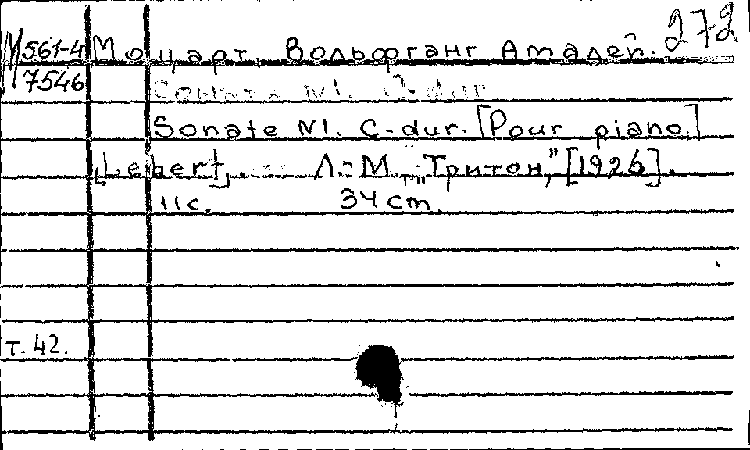 272
М561-4 Моцарт, Вольфганг Амадей.
7546
Соната N1. C-dur
Sonate N1. C-dur. [Pour piano.]
[Lebert]. — Л.-М., „Тритон," [1926].
11 с. 34 cm.
т. 42.